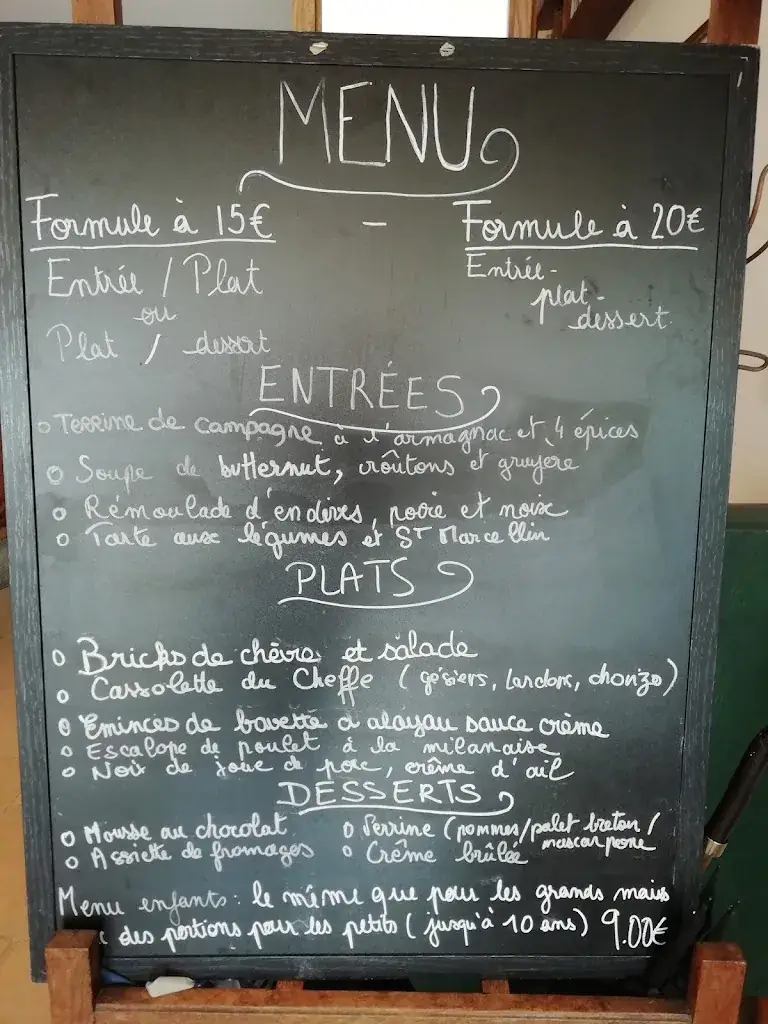 MENU
Formule à 15€ - Formule à 20€
Entrée / Plat
ou
Plat / dessert
Entrée-
plat-
dessert
ENTRÉES
Terrine de campagne à l'armagnac et 4 épices
Soupe de butternut, croûtons et gruyere
Rémoulade d'endives, poire et noix
Tarte aux légumes et ST Marcellin
PLATS
Bricks de chèvre et salade
Cassolette du Cheffe (gésiers, lardons, chorizo)
Eminces de bavette d'aloyau sauce crème
Escalope de poulet à la milanaise
Noix de joue de porc, crême d'ail
DESSERTS
Mousse au chocolat
Assiette de fromages
Verrine (pommes/palet breton/
mascarpone
Crême brûlée
Menu enfants: le même que pour les grands mais
des portions pour les petits (jusqu'à 10 ans) 9.00€